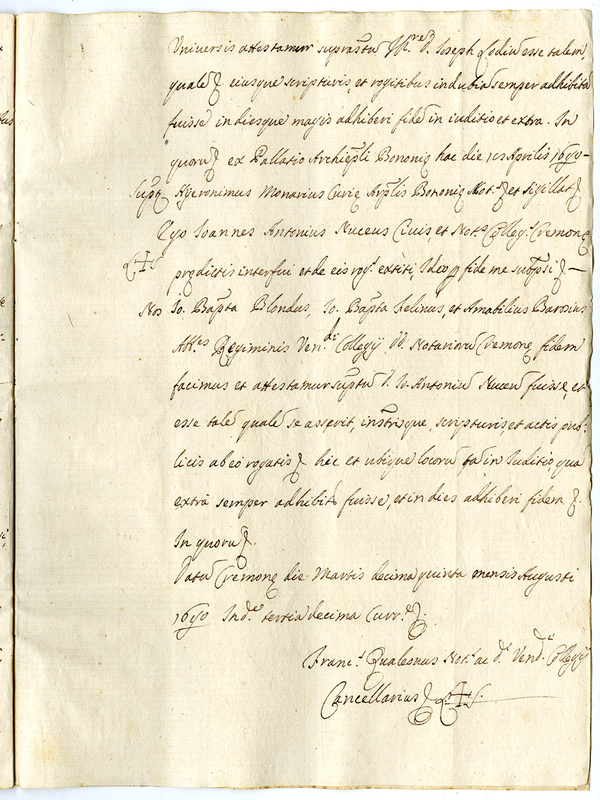 Universis attestamur suprastũ D. Joseph Lodiũ esse talem,
qualẽ eiusque scripturis et rogitibus indubiã semper adhibitã
fuisse in diesque magis adhiberi fidẽ in iuditio et extra. In
quorũ ex Pallatio Archiepli Bononię hac die Aprilis 1690 -
Hyeronimus Monarius Curię Bononię Not.s et sigillat
Ego Ioannes Antonius Nuceus Civis, et Not.s Colleg.s Cremonę
prędictis interfui et de eis rog.s extiti, Ideo fidẽ me subpsi —
Nos Jo. Bapta Blondus, Jo. Bapta Selinus, et Amabilius Barosius
Abb.es Regiminis Ven.di Collegij DD. Notariorũ Cremonę fidem
facimus et attestamur suptũ D. Jo. Antoniũ Nuceũ fuisse, et
esse talẽ qualẽ se asserit, instrisque, scripturis et actis pub:
licis ab eo rogatis hic et ubique locorũ tã in Iuditio quã
extrà semper adhibitã fuisse, et in dies adhiberi fidem
In quorũ.
Datũ Cremonę die Martis decima quinta mensis Augusti
1690 Ind.e tertia decima Curr.e
Franc.s Qualeonus Not.s ac d.i Ven.di Collegij
Cancellarius L+S.